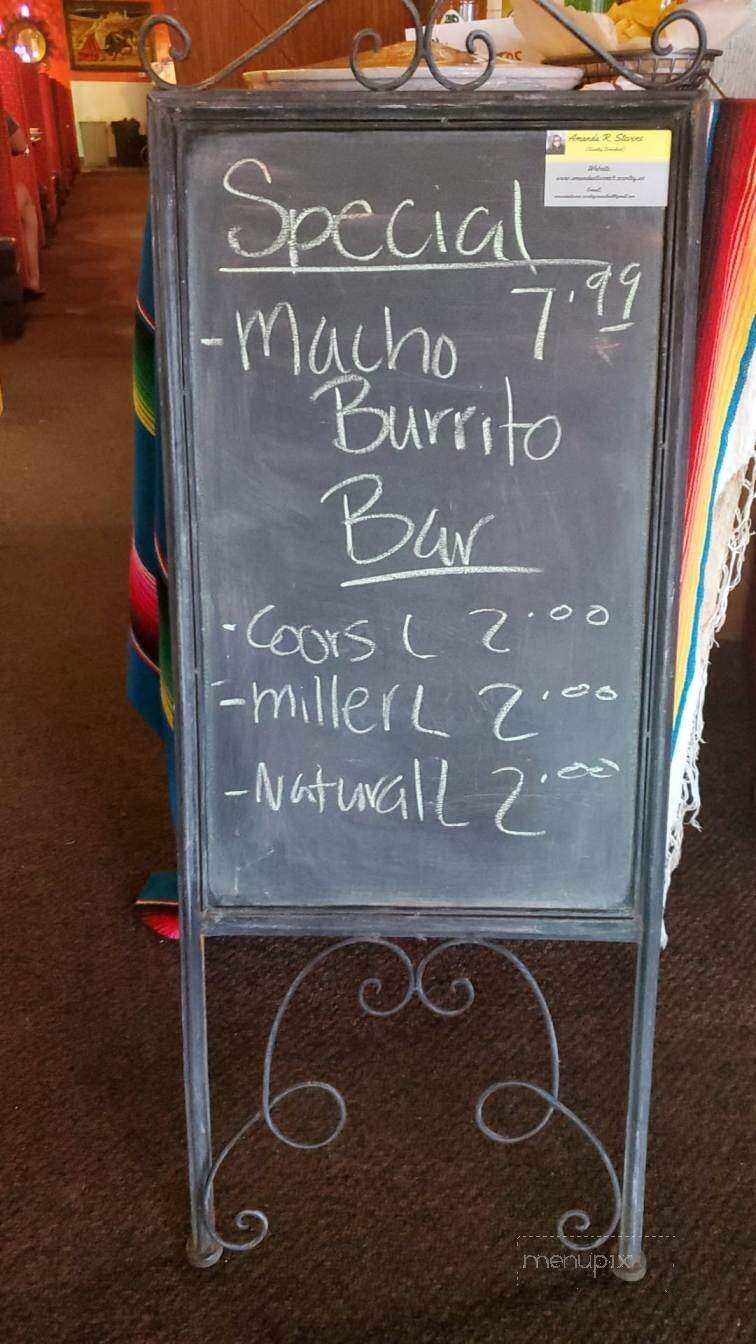 Amanda R. Stevens
Website:
Email:
Special
7.99
-Macho
Burrito
Bar
-Coors L 2.00
-miller L 2.00
-Natural L 2.00
menupix